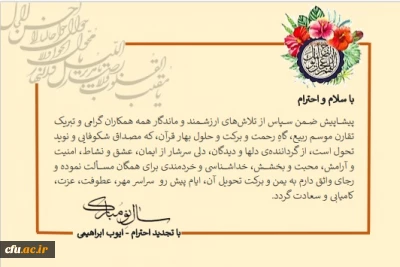 یا مقلب القلوب
با سلام و احترام
پیشاپیش ضمن سپاس از تلاش‌های ارزشمند و ماندگار همه همکاران گرامی و تبریک
تقارن موسم ربیع، گاهِ رحمت و برکت و حلول بهار قرآن، که مصداق شکوفایی و نوید
تحول است، از گرداننده‌ی دلها و دیدگان، دلی سرشار از ایمان، عشق و نشاط، امنیت
و آرامش، محبت و بخشش، خداشناسی و خردمندی برای همگان مسألت نموده و
رجای واثق دارم به یمن و برکت تحویل آن، ایام پیش رو سراسر مهر، عطوفت، عزت،
کامیابی و سعادت گردد.
سال نو مبارک
با تجدید احترام - ایوب ابراهیمی
cfu.ac.ir